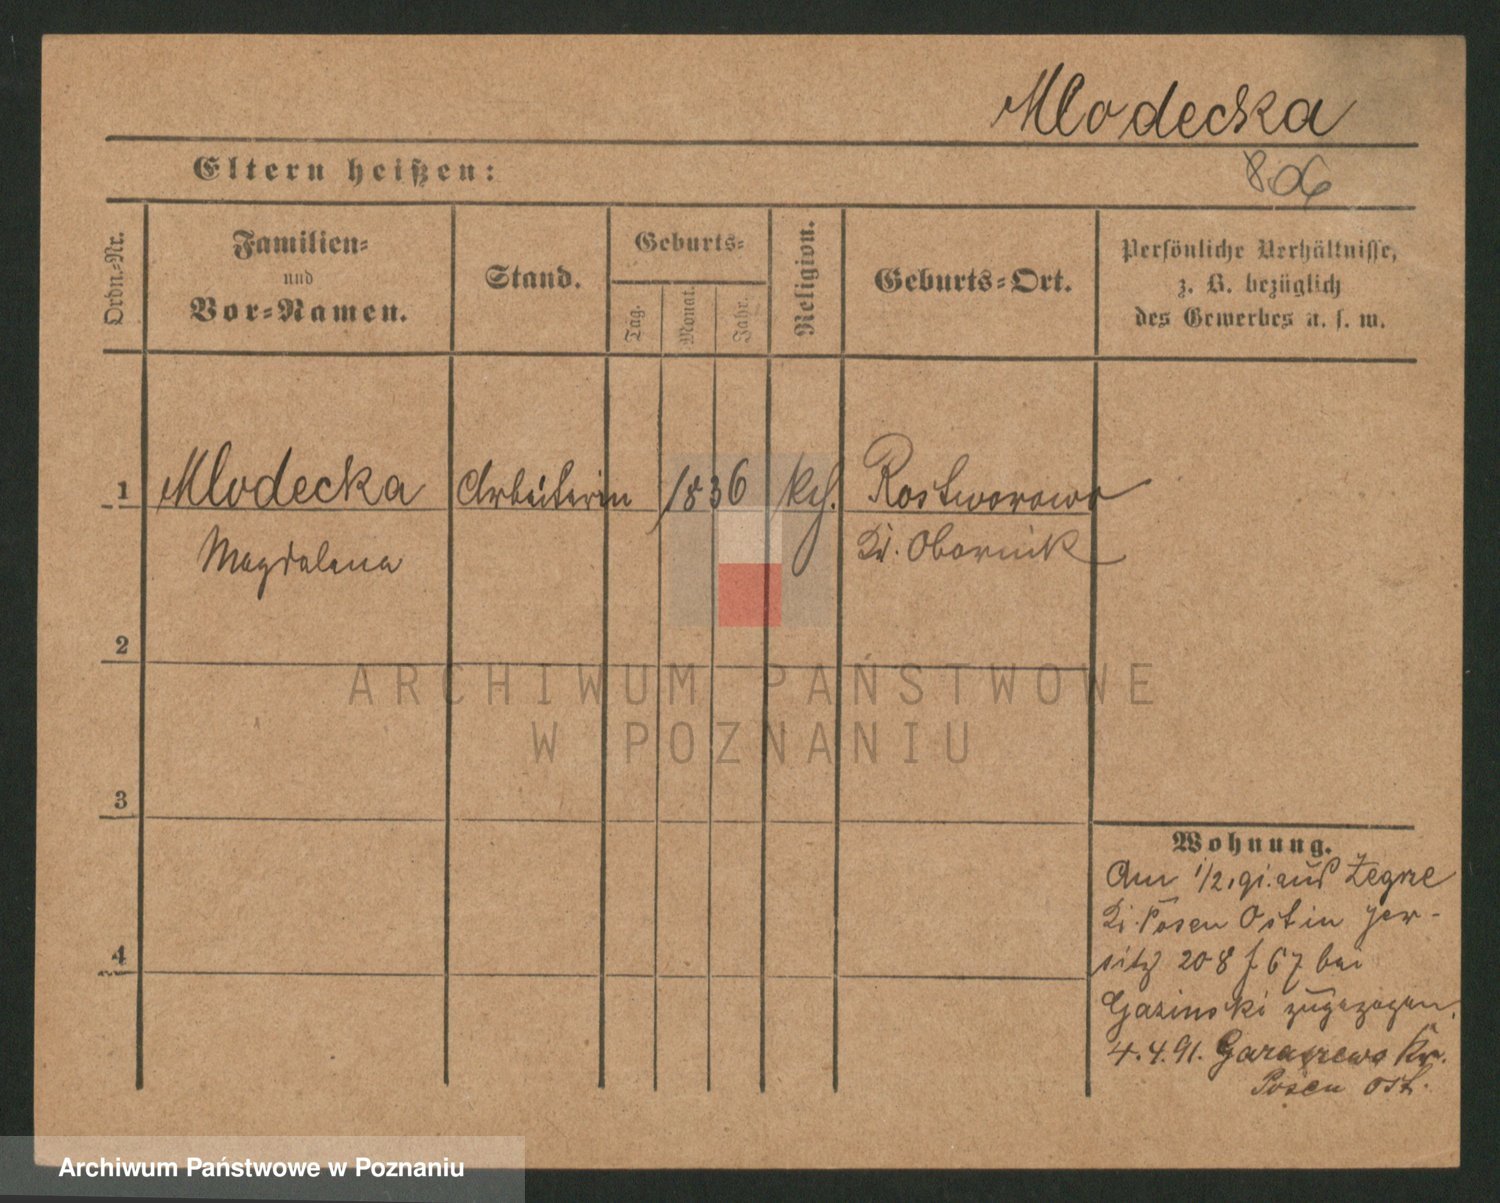 Mlodecka
806
Eltern heißen:
Ordn.-Nr.
Familien-
und
Vor-Namen.
Stand.
Geburts-
Tag.
Monat.
Jahr.
Religion.
Geburts-Ort.
Persönliche Verhältnisse,
z. B. bezüglich
des Gewerbes u. s. w.
1
Mlodecka
Arbeiterin
1836
kth.
Rostworowo
Magdalena
Kr. Obornik
2
3
4
Wohnung.
Am 1/2.91. aus Zegrze
Kr. Posen Ost in Jer-
sitz 208 f 67 bei
Gazinski zugezogen.
4.4.91. Garaszewo Kr.
Posen Ost.
ARCHIWUM PAŃSTWOWE
W POZNANIU
Archiwum Państwowe w Poznaniu